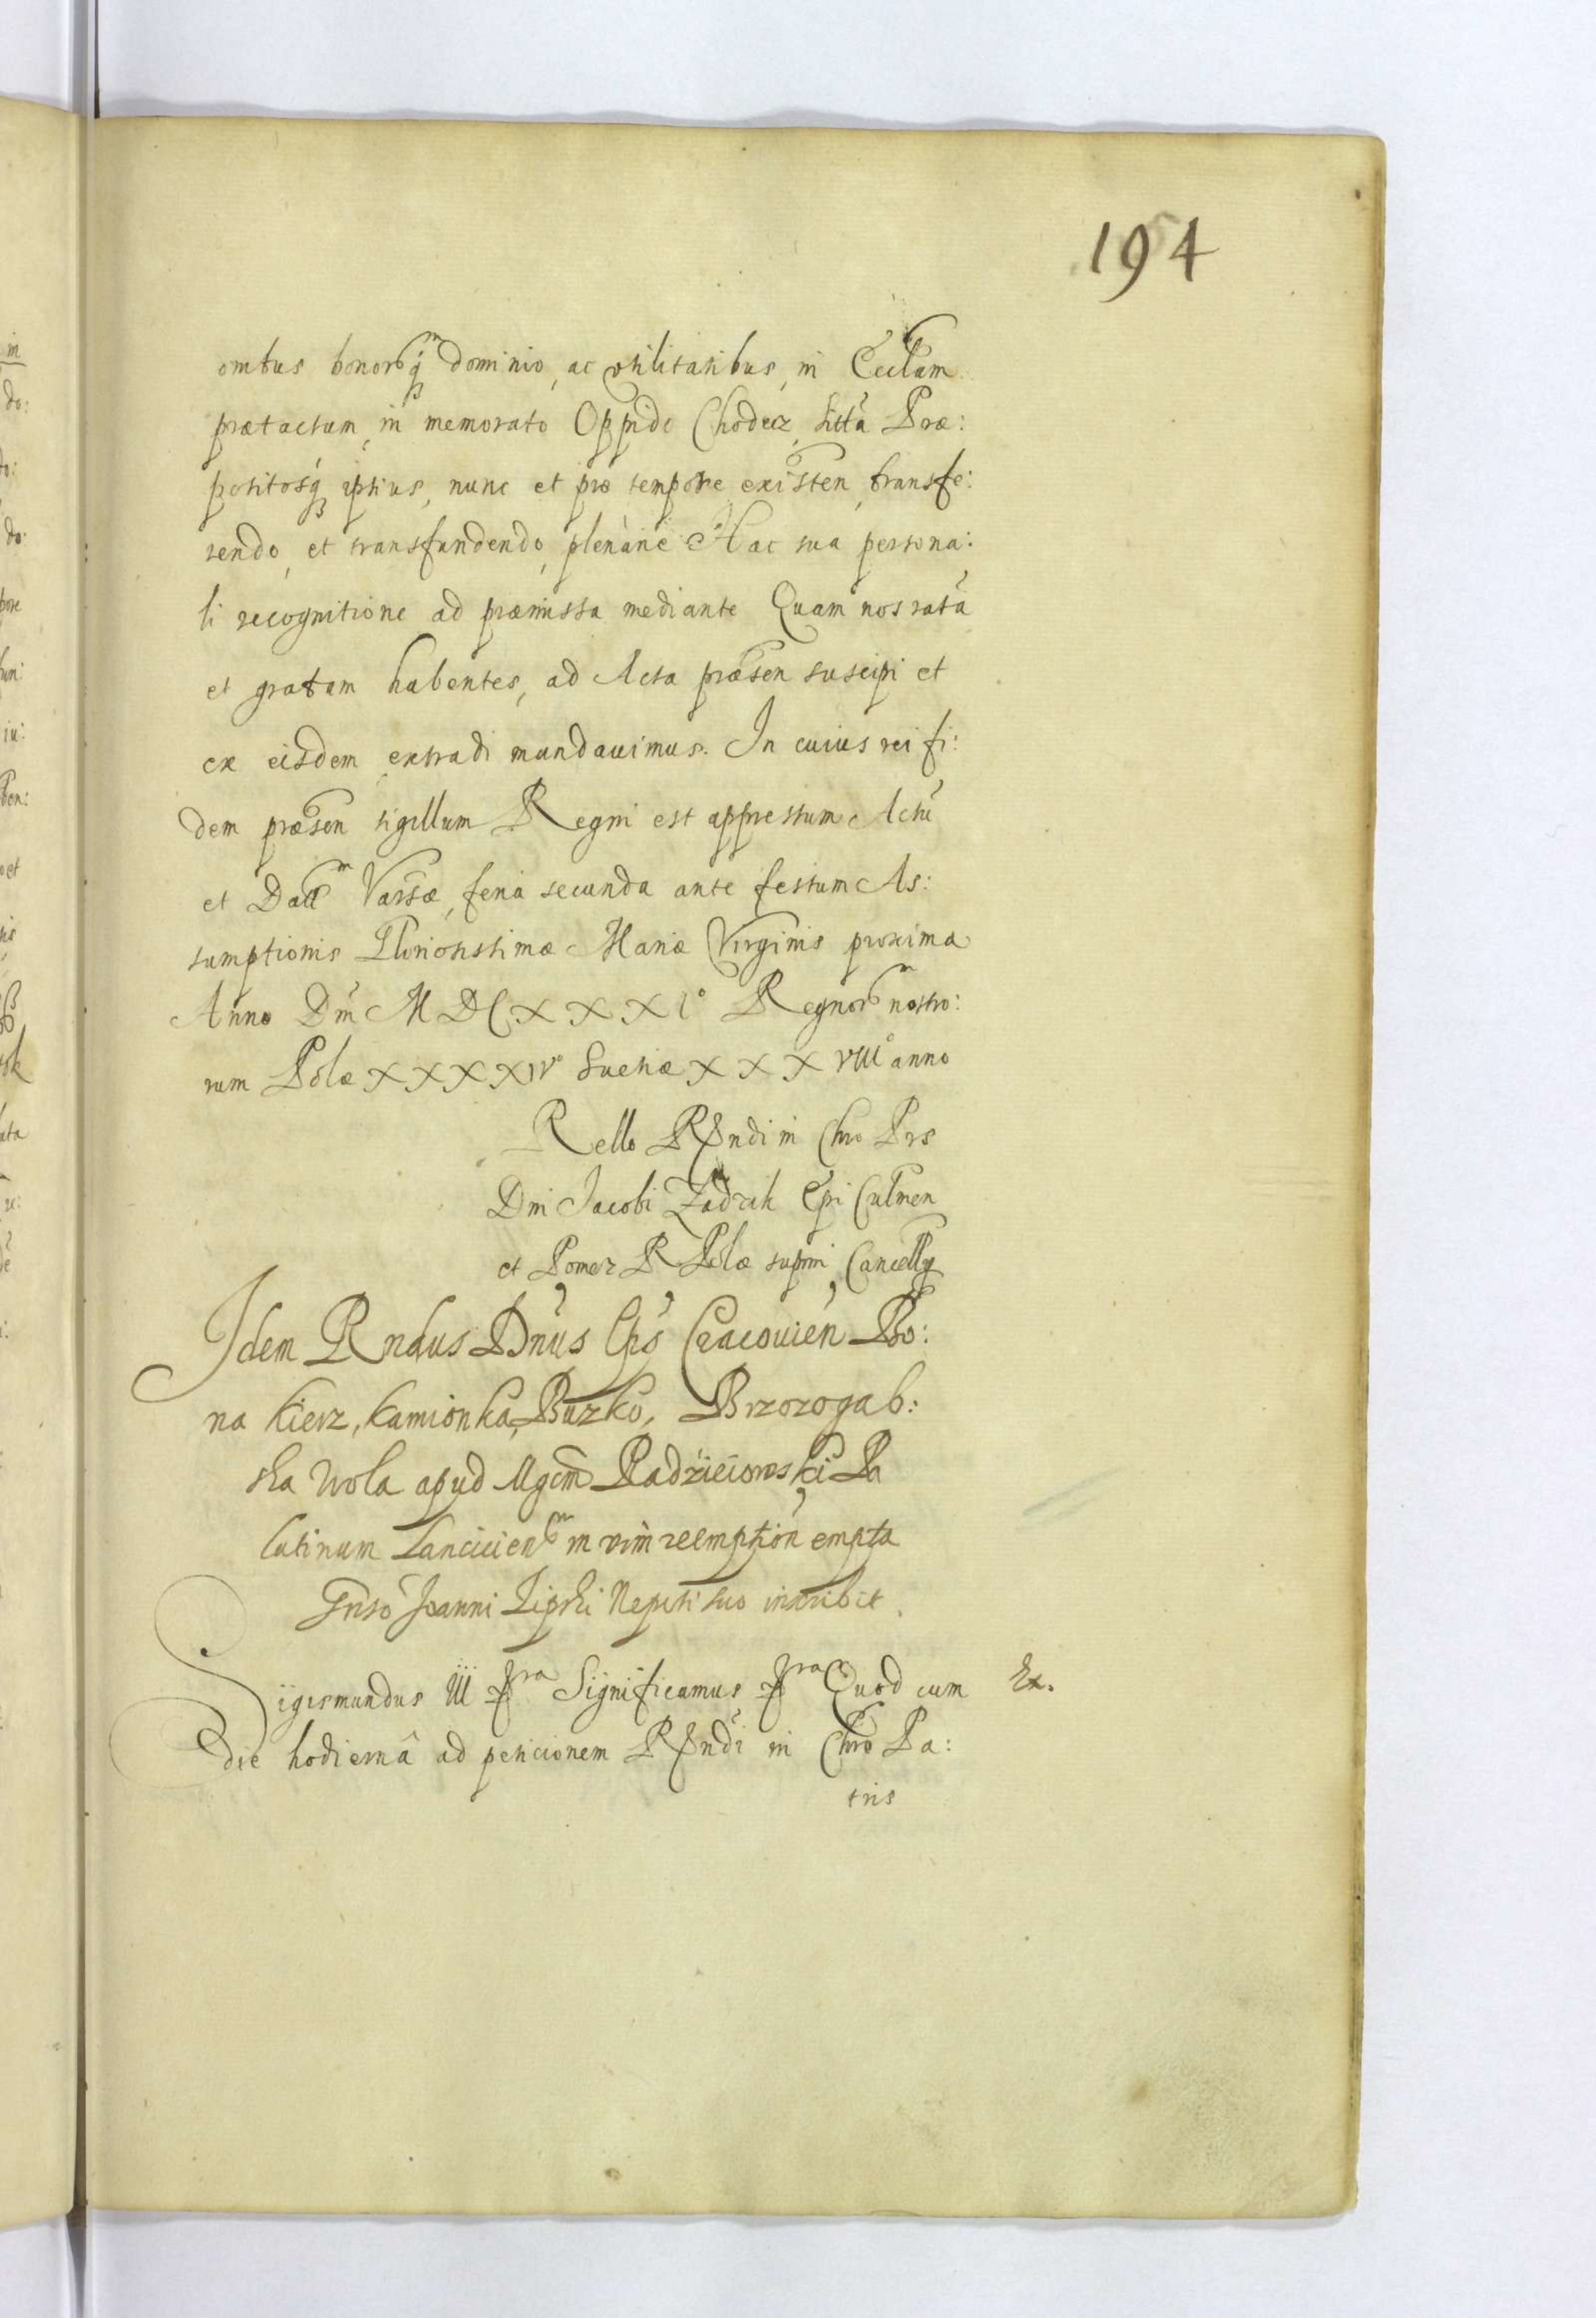 194
ombus bonorūq dominio, ac vtilitatibus, in Eccl̃am
prætactam, in memorato Oppido Chodecz, sittã Præ:
positosq̃ ipsius, nunc et pro tempore existen̄ transfe:
rendo, et transfundendo, plenariè Hac sua persona:
li recognitione ad præmissa mediante Quam nos ratã
et gratam habentes, ad Acta præsen̄ suscipi et
ex eisdem extradi mandauimus. In cuius rei fi:
dem præsen̄ sigillum Regni est appressum Actũ
et Datt̃m Varsæ, feria secunda ante festum As:
sumptionis Gloriosissimæ Mariæ Virginis proxima
Anno Dñi MDCXXXI° Regnor̃m nostro:
rum Polæ XXXXIV° Sueciæ XXXVIII° anno
Rello Rṽndi in Chro Prs
Dni Jacobi Zadzik Epi Culmen
et Pomez R Polæ supmi Cancell
Idem Rndus Dn̄us Ep̃s Cracouień Bo:
na Kierz, Kamionka, Buzko, Brzozogab:
ska Wola apud Mgcm̃ Radzieiowski Pa
latinum Lanciciens̃m in vim reemption̄ empta
Gnso Joanni Lipski Nepoti suo inscribit.
Sigismundus III &ra Significamus &ra Quod cum
Ex.
die hodiernâ ad peticionem Rṽndi in Chro Pa:
tris